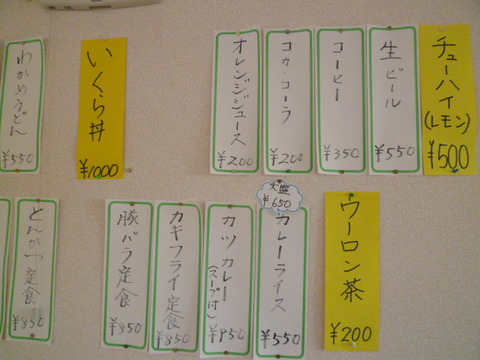 チューハイ
(レモン)
¥500
生ビール
¥550
コーヒー
¥350
コカ・コーラ
¥200
オレンジジュース
¥200
いくら丼
¥1000
わかめうどん
¥550
ウーロン茶
¥200
大盛
¥650
カレーライス
¥550
カツカレー
(スープ付)
¥950
カキフライ定食
¥850
豚バラ定食
¥850
とんかつ定食
¥850